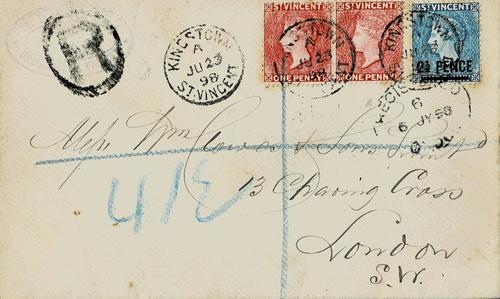 R
KINGSTOWN
A
JU 23
98
ST. VINCENT
ST VINCENT
ONE PENNY
ST VINCENT
ONE PENNY
ST VINCENT
2½ PENCE
KINGSTOWN
JU 23
KINGSTOWN
REGISTERED
6
6 JY 98
Messrs Wm Clowes & Sons Limited
13 Charing Cross
London
S.W.
413